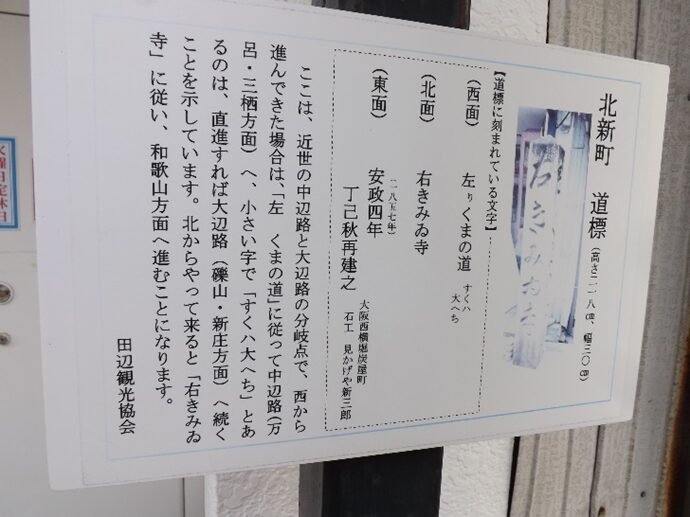 北新町　道標（高さ二一八㎝、幅三〇㎝）
右きみゐ寺
【道標に刻まれている文字】
（西面）　左りくまの道　すくハ
大へち
（北面）　右きみゐ寺
（東面）　安政四年
（一八五七年）
丁己秋再建之
大阪西横堀炭屋町
石工　見かげや新三郎
ここは、近世の中辺路と大辺路の分岐点で、西から
進んできた場合は、「左　くまの道」に従って中辺路（万
呂・三栖方面）へ、小さい字で「すくハ大へち」とあ
るのは、直進すれば大辺路（礫山・新庄方面）へ続く
ことを示しています。北からやって来ると「右きみゐ
寺」に従い、和歌山方面へ進むことになります。
田辺観光協会
火曜日定休日